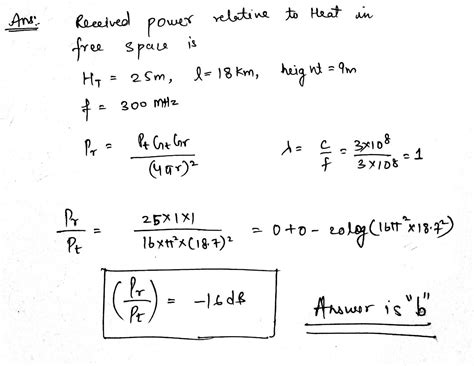 Ans: Received power relative to Heat in
free space is
HT = 25m, l = 18Km, height = 9m
f = 300 MHz
Pr = PtGtGr / (4πr)² λ = c/f = 3×10⁸ / 3×10⁸ = 1
Pr/Pt = 25×1×1 / 16×π²×(18.7)² = 0+0- 20log(16π²×18.7²)
(Pr/Pt) = -16dB Answer is "b"